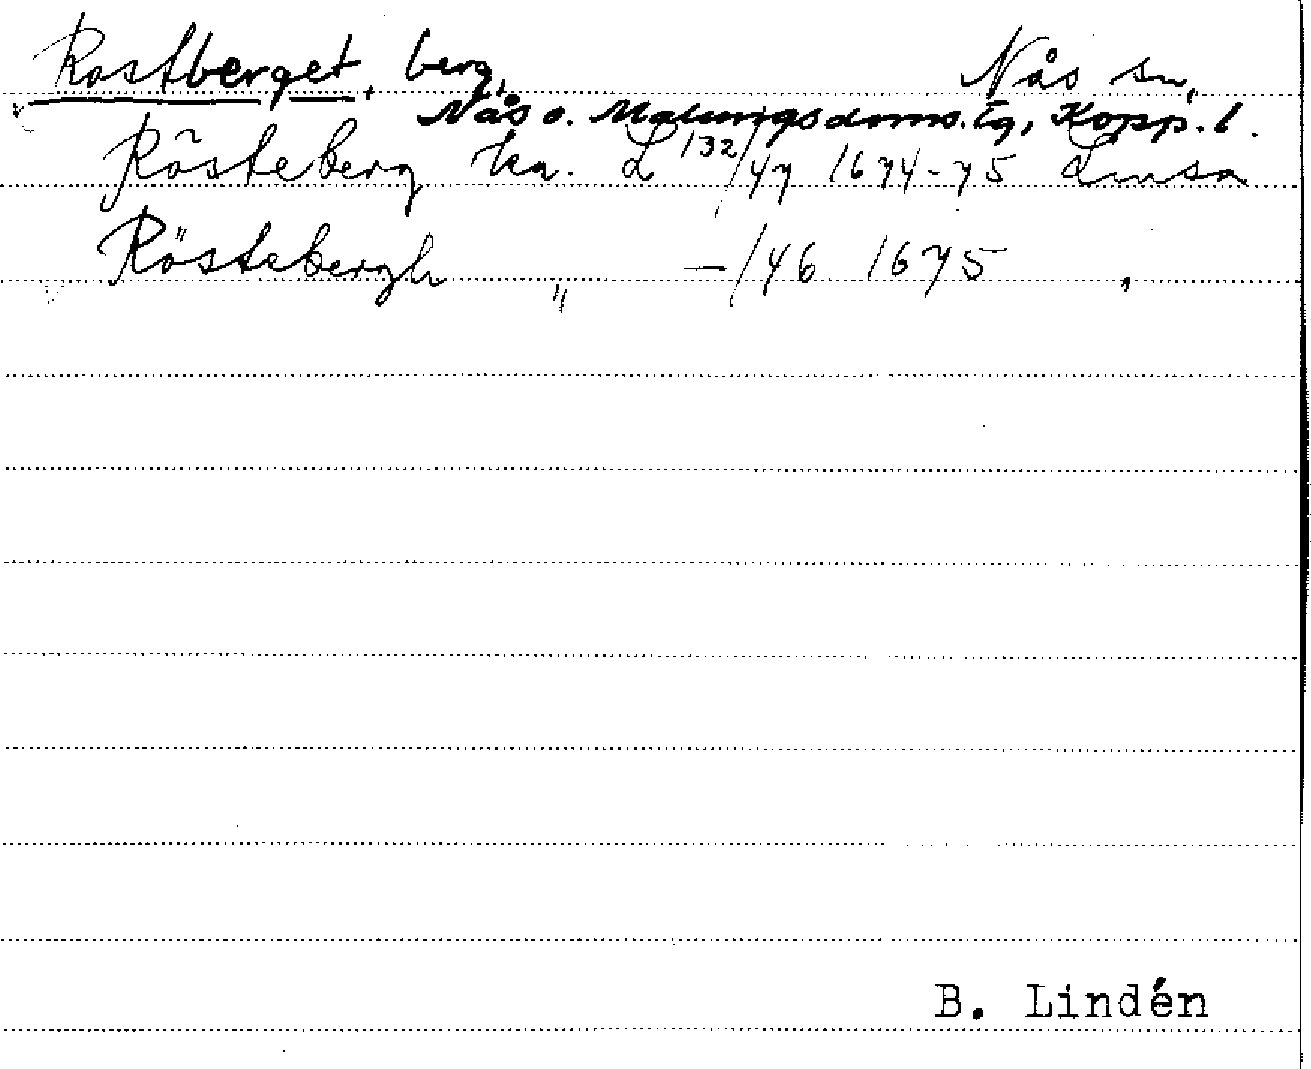 Rostberget, berg, Nås sn,
Nås o. Malungs doms. tg, Kopp. l.
Rösteberg ka. L 132/47 1674-75 Lmsa
Röstebergh " -/46 1675 "
B. Lindén